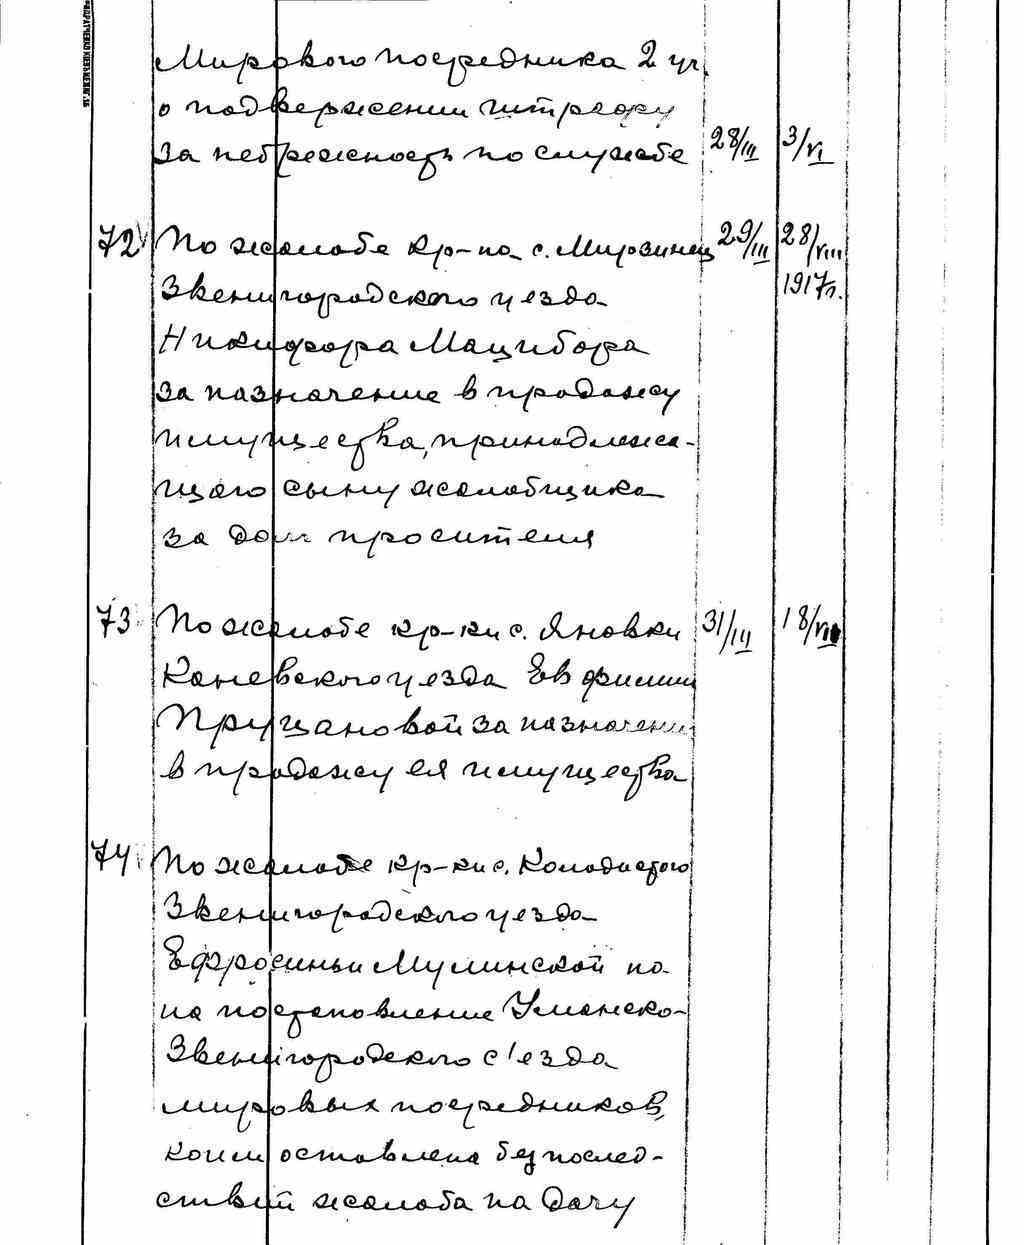 Мирового посредника 2 уч.
о подвержении штрафу
за небрежность по службе 28/III 3/VI
72 По жалобе кр-на с. Мирзинец 29/III 28/VIII
Звенигородского уезда 1917 г.
Никифора Мацибора
за назначение в продажу
имущества, принадлежа-
щаго сыну жалобщика
за долг просителя
73 По жалобе кр-ки с. Яновки 31/III 18/VII
Каневского уезда Евфимии
Прущановой за назначение
в продажу ея имущества
74 По жалобе кр-ки с. Колодистого
Звенигородского уезда
Ефросиньи Мулинской на
на постановление Уманско-
Звенигородского с'езда
мировых посредников,
коим оставлена без послед-
ствий жалоба на дачу